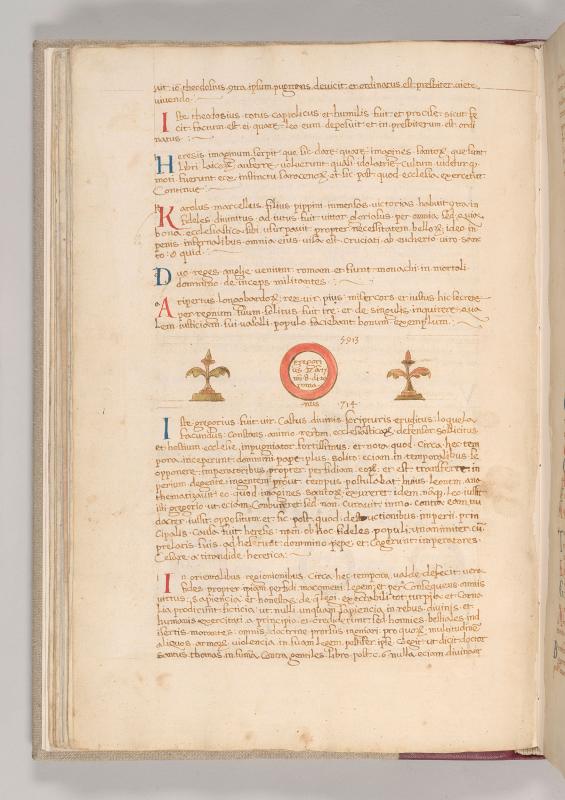 uit. io theodosius contra ipsum pugnans devicit et ordinatus est presbiter mete
vivendo
Iste theodosius totus catholicus et humilis fuit et
cit factum est ei quare leo eum deposuit et in presbiterum est ordi
natus
Heresis imaginum serpit que sic dare quare imagines sanctorum que sunt
libri laicorum auferre voluerunt quasi idolatrie cultum videtur
moti fuerunt instinctu sarocenorum et sic post quod ecclesia exercetur
Continue
Karolus marcellus filius pippini inmensas victorias habuit contra in
fideles divinitus adiutus fuit victor gloriosus per omnia sed quia
bona ecclesiastica sibi usurpavit propter necessitatem bellorum ideo in
penis infernalibus omnia eius visa est cruciari ab eucherio viro sanc
to
Duo reges anglie veniunt romam et fiunt monachi in mortali
domino deinceps militantes
Aripertus longobardorum rex vir pius misericors et iustus hic secrete
per regnum suum solitus fuit ire et de singulis inquirere
lem iusticiam sui vasalli populo faciebant bonum exemplum
5913
gregori
us
roma
nus 714
Iste gregorius fuit vir castus divinis scripturis eruditus loquela
facundus constans animo rerum ecclesiasticarum defensor sollicitus
et hostium ecclesie impugnator fortissimus et nota quod circa hec tem
pora inceperunt domini pape plus solito eciam in temporalibus se
opponere imperatoribus propter perfidiam eorum et est transferre in
perium degente ingentem prout tempus postulabat huius leonem ana
thematizavit eo quod imagines sanctorum exureret idem namque leo iussit
isti gregorio ut eciam combureret sed non curavit immo contra eam
dacter iussit oppositum et sic post quod destructionibus imperii prin
cipalis causa fuit heresis nam ob hoc fideles populi unanimiter cum
prelatis suis adheserunt domino pape et cogerunt imperatores
cessare a tirannide heretica
In orientalibus regionibus circa hec tempora valde defecit vera
fides propter ipsam perfidi macgmeti legem et per consequens omnis
virtus sapiencia et honestas de qua legi execrabili tot turpia et carna
lia prodierunt ut nulli unquam sapiencia in rebus divinis et
humanis exercitati a principio ei crediderunt sed homines bestiales in d
esertis morantes omnis doctrine prorsus ignari per quorum multitudinem
aliquos armorum violencia in suam legem pestifer ipse coegit ut dicit doctor
sanctus thomas in summa contra gentiles libro post c 6 nulla eciam divinarum